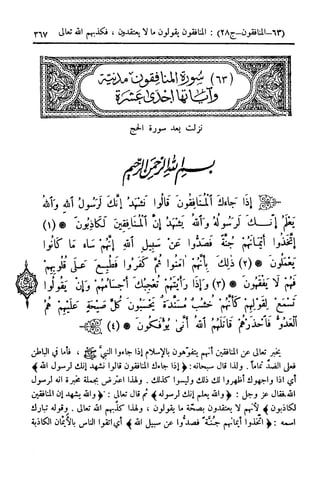 (٦٣-المنافقون-ج٢٨) : المنافقون يقولون ما لا يعتقدون ، فكذبهم الله تعالى ٣٦٧
(٦٣) سورة المنافقون مدنية
وآياتها إحدى عشرة
نزلت بعد سورة الحج
بسم الله الرحمن الرحيم
إِذَا جَاءَكَ الْمُنَافِقُونَ قَالُوا نَشْهَدُ إِنَّكَ لَرَسُولُ اللهِ وَاللهُ
يَعْلَمُ إِنَّكَ لَرَسُولُهُ وَاللهُ يَشْهَدُ إِنَّ الْمُنَافِقِينَ لَكَاذِبُونَ * (١)
اِتَّخَذُوا أَيْمَانَهُمْ جُنَّةً فَصَدُّوا عَنْ سَبِيلِ اللهِ إِنَّهُمْ سَاءَ مَا كَانُوا
يَعْمَلُونَ * (٢) ذَلِكَ بِأَنَّهُمْ اٰمَنُوا ثُمَّ كَفَرُوا فَطُبِعَ عَلَى قُلُوبِهِمْ
فَهُمْ لَا يَفْقَهُونَ * (٣) وَإِذَا رَأَيْتَهُمْ تُعْجِبُكَ أَجْسَامُهُمْ وَإِنْ يَقُولُوا
تَسْمَعْ لِقَوْلِهِمْ كَأَنَّهُمْ خُشُبٌ مُسَنَّدَةٌ يَحْسَبُونَ كُلَّ صَيْحَةٍ عَلَيْهِمْ هُمُ
الْعَدُوُّ فَاحْذَرْهُمْ قَاتَلَهُمُ اللهُ أَنَّى يُؤْفَكُونَ * (٤)
يخبر تعالى عن المنافقين أنهم يتفوهون بالإسلام إذا جاءوا النبي ﷺ ، فأما في الباطن
فعلى الضد تماماً . ولذا قال سبحانه : ﴿ إذا جاءك المنافقون قالوا نشهد إنك لرسول الله ﴾
أي اذا واجهوك أظهروا لك ذلك وليسوا كذلك . ولهذا اعترض بجملة مخبرة انه لرسول
الله فقال عز وجل : ﴿ والله يعلم إنك لرسوله ﴾ ثم قال تعالى : ﴿ والله يشهد إن المنافقين
لكاذبون ﴾ لأنهم لا يعتقدون بصحة ما يقولون ، ولهذا كذبهم الله تعالى . وقوله تبارك
اسمه : ﴿ اتخذوا أيمانهم جنة فصدوا عن سبيل الله ﴾ أي اتقوا الناس بالأيمان الكاذبة